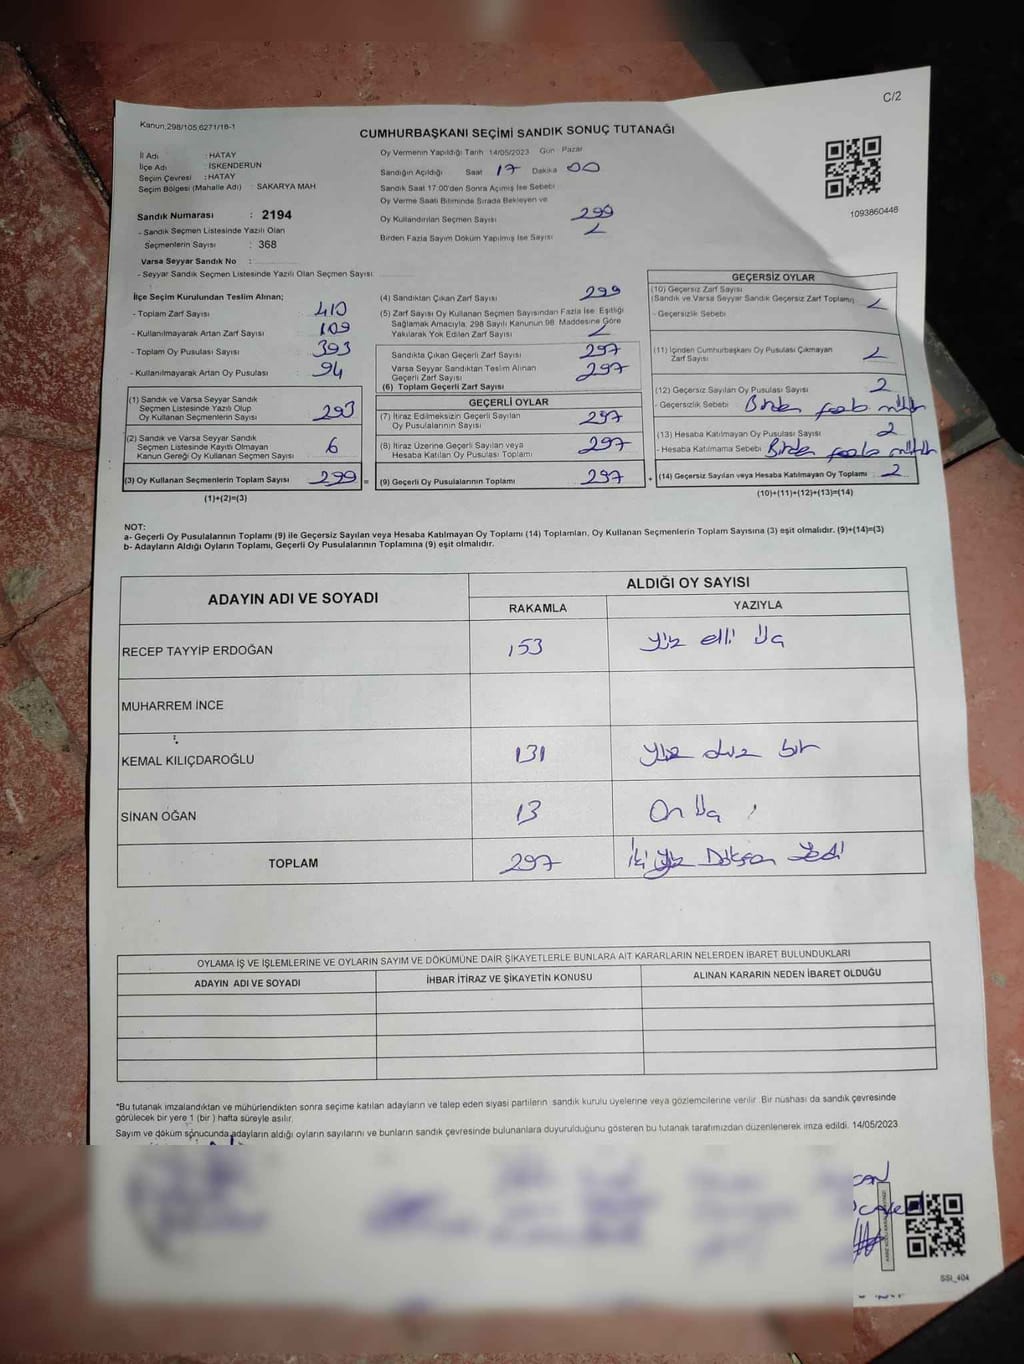 C/2
Kanun.298/105,6271/18-1
CUMHURBAŞKANI SEÇİMİ SANDIK SONUÇ TUTANAĞI
İl Adı : HATAY
İlçe Adı : İSKENDERUN
Seçim Çevresi : HATAY
Seçim Bölgesi (Mahalle Adı) : SAKARYA MAH
Sandık Numarası : 2194
- Sandık Seçmen Listesinde Yazılı Olan
Seçmenlerin Sayısı : 368
Varsa Seyyar Sandık No :
- Seyyar Sandık Seçmen Listesinde Yazılı Olan Seçmen Sayısı:
Oy Vermenin Yapıldığı Tarih 14/05/2023 Gün : Pazar
Sandığın Açıldığı Saat 17 Dakika 00
Sandık Saat 17:00'den Sonra Açımış İse Sebebi
Oy Verme Saati Bitiminde Sırada Bekleyen ve
Oy Kullandırılan Seçmen Sayısı 299
Birden Fazla Sayım Döküm Yapılmış İse Sayısı
1093860448
İlçe Seçim Kurulundan Teslim Alınan;
- Toplam Zarf Sayısı 410
- Kullanılmayarak Artan Zarf Sayısı 109
- Toplam Oy Pusulası Sayısı 393
- Kullanılmayarak Artan Oy Pusulası 94
(1) Sandık ve Varsa Seyyar Sandık
Seçmen Listesinde Yazılı Olup
Oy Kullanan Seçmenlerin Sayısı 293
(2) Sandık ve Varsa Seyyar Sandık
Seçmen Listesinde Kayıtlı Olmayan
Kanun Gereği Oy Kullanan Seçmen Sayısı 6
(3) Oy Kullanan Seçmenlerin Toplam Sayısı 299 =
(1)+(2)=(3)
(4) Sandıktan Çıkan Zarf Sayısı 299
(5) Zarf Sayısı Oy Kullanan Seçmen Sayısından Fazla İse; Eşitliği
Sağlamak Amacıyla, 298 Sayılı Kanunun 98. Maddesine Göre
Yakılarak Yok Edilen Zarf Sayısı
Sandıkta Çıkan Geçerli Zarf Sayısı 297
Varsa Seyyar Sandıktan Teslim Alınan
Geçerli Zarf Sayısı 297
(6) Toplam Geçerli Zarf Sayısı
GEÇERLİ OYLAR
(7) İtiraz Edilmeksizin Geçerli Sayılan
Oy Pusulalarının Sayısı 297
(8) İtiraz Üzerine Geçerli Sayılan veya
Hesaba Katılan Oy Pusulası Toplamı 297
(9) Geçerli Oy Pusulalarının Toplamı 297 +
GEÇERSİZ OYLAR
(10) Geçersiz Zarf Sayısı
(Sandık ve Varsa Seyyar Sandık Geçersiz Zarf Toplamı)
- Geçersizlik Sebebi
(11) İçinden Cumhurbaşkanı Oy Pusulası Çıkmayan
Zarf Sayısı
(12) Geçersiz Sayılan Oy Pusulası Sayısı 2
- Geçersizlik Sebebi Birden fazla mühür
(13) Hesaba Katılmayan Oy Pusulası Sayısı 2
- Hesaba Katılmama Sebebi Birden fazla mühür
(14) Geçersiz Sayılan veya Hesaba Katılmayan Oy Toplamı 2
(10)+(11)+(12)+(13)=(14)
NOT:
a- Geçerli Oy Pusulalarının Toplamı (9) ile Geçersiz Sayılan veya Hesaba Katılmayan Oy Toplamı (14) Toplamları, Oy Kullanan Seçmenlerin Toplam Sayısına (3) eşit olmalıdır. (9)+(14)=(3)
b- Adayların Aldığı Oyların Toplamı, Geçerli Oy Pusulalarının Toplamına (9) eşit olmalıdır.
ADAYIN ADI VE SOYADI
ALDIĞI OY SAYISI
RAKAMLA YAZIYLA
RECEP TAYYİP ERDOĞAN 153 Yüz elli üç
MUHARREM İNCE
KEMAL KILIÇDAROĞLU 131 Yüz otuz bir
SİNAN OĞAN 13 On üç
TOPLAM 297 İki Yüz Doksan Yedi
OYLAMA İŞ VE İŞLEMLERİNE VE OYLARIN SAYIM VE DÖKÜMÜNE DAİR ŞİKAYETLERLE BUNLARA AİT KARARLARIN NELERDEN İBARET BULUNDUKLARI
ADAYIN ADI VE SOYADI İHBAR İTİRAZ VE ŞİKAYETİN KONUSU ALINAN KARARIN NEDEN İBARET OLDUĞU
*Bu tutanak imzalandıktan ve mühürlendikten sonra seçime katılan adayların ve talep eden siyasi partilerin sandık kurulu üyelerine veya gözlemcilerine verilir. Bir nüshası da sandık çevresinde
görülecek bir yere 1 (bir) hafta süreyle asılır.
Sayım ve döküm sonucunda adayların aldığı oyların sayılarını ve bunların sandık çevresinde bulunanlara duyurulduğunu gösteren bu tutanak tarafımızdan düzenlenerek imza edildi. 14/05/2023
SSI_404